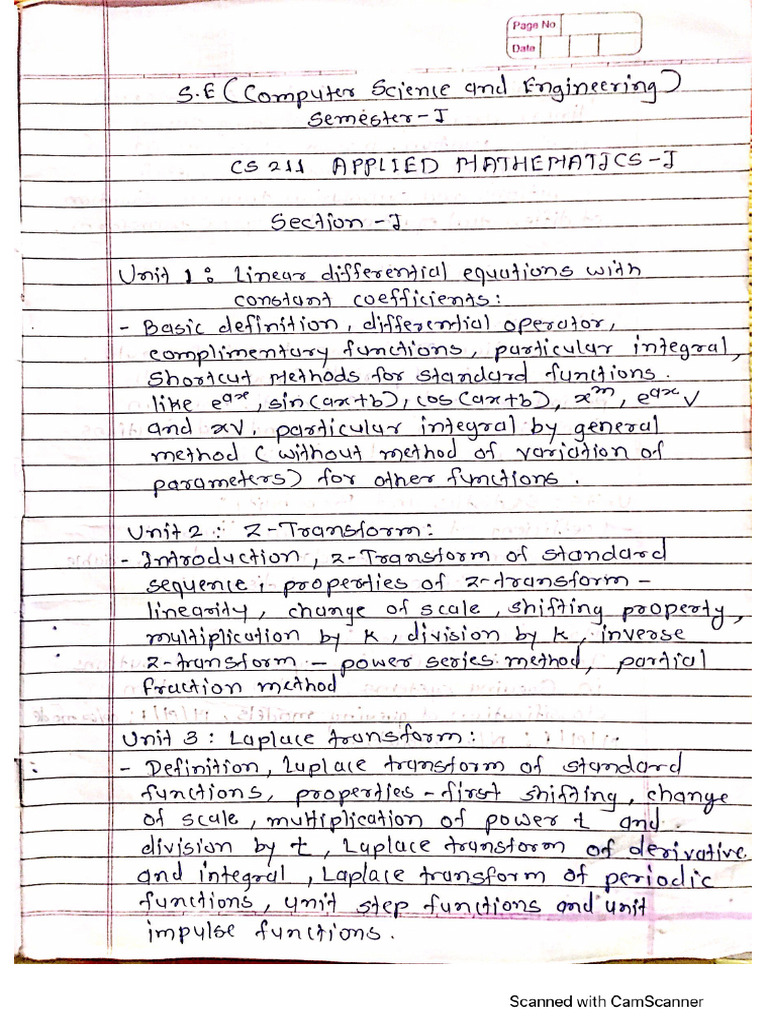 Page No
Date
S.E (Computer Science and Engineering)
Semester-I
CS 211 APPLIED MATHEMATICS-I
Section-I
Unit 1: Linear differential equations with
constant coefficients:
- Basic definition, differential operator,
complimentary functions, particular integral,
Shortcut Methods for standard functions.
like e^ax, sin(ax+b), cos(ax+b), x^m, e^ax V
and xV, particular integral by general
method (without method of variation of
parameters) for other functions.
Unit 2: Z-Transform:
- Introduction, z-Transform of standard
sequence, properties of z-transform -
linearity, change of scale, shifting property,
multiplication by K, division by K, inverse
z-transform - power series method, partial
fraction method
Unit 3: Laplace transform:
- Definition, Laplace transform of standard
functions, properties - first shifting, change
of scale, multiplication of power t and
division by t, Laplace transform of derivative
and integral, Laplace transform of periodic
functions, unit step functions and unit
impulse functions.
Scanned with CamScanner